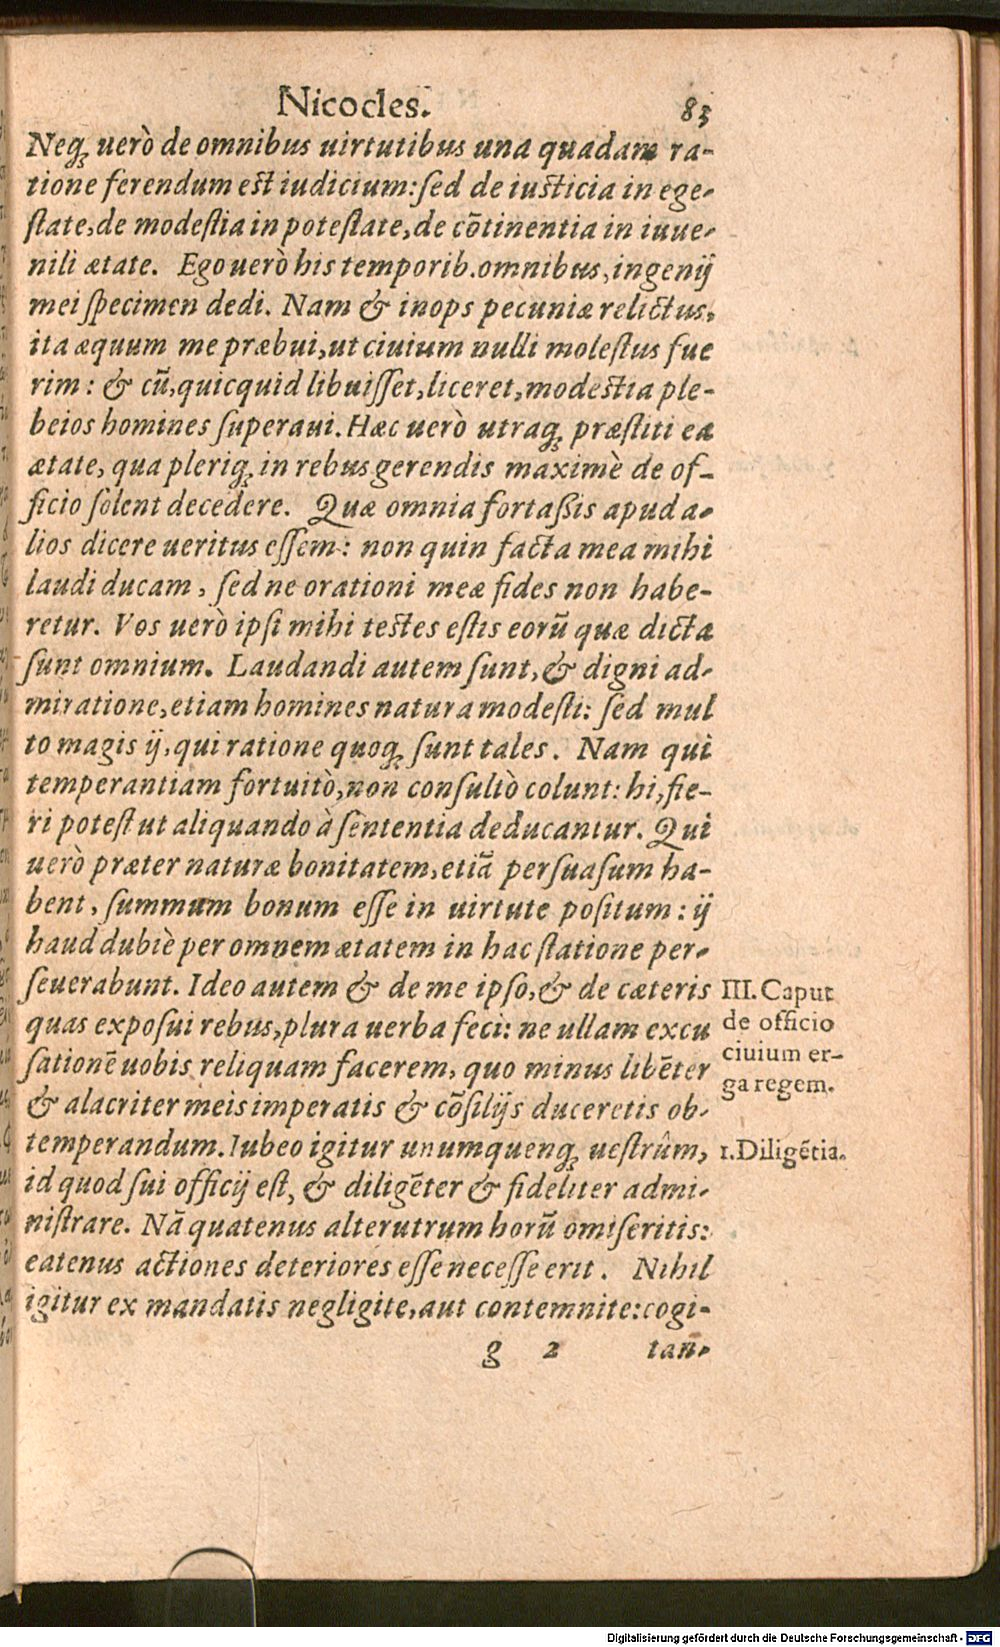 Nicocles. 83
Neq; uerò de omnibus uirtutibus una quadam ra-
tione ferendum est iudicium: sed de iusticia in ege-
state, de modestia in potestate, de cõtinentia in iuue-
nili ætate. Ego uerò his temporib. omnibus, ingenij
mei specimen dedi. Nam & inops pecuniæ relictus,
ita æquum me præbui, ut ciuium nulli molestus fue
rim: & cũ, quicquid libuisset, liceret, modestia ple-
beios homines superaui. Hæc uerò utraq; præstiti ea
ætate, qua pleriq; in rebus gerendis maximè de of-
ficio solent decedere. Quæ omnia fortaßis apud a-
lios dicere ueritus essem: non quin facta mea mihi
laudi ducam, sed ne orationi meæ fides non habe-
retur. Vos uerò ipsi mihi testes estis eorũ quæ dicta
sunt omnium. Laudandi autem sunt, & digni ad-
miratione, etiam homines natura modesti: sed mul
to magis ij, qui ratione quoq; sunt tales. Nam qui
temperantiam fortuitò, non consultò colunt: hi, fie-
ri potest ut aliquando à sententia deducantur. Qui
uerò præter naturæ bonitatem, etiã persuasum ha-
bent, summum bonum esse in uirtute positum: ij
haud dubiè per omnem ætatem in hac statione per-
seuerabunt. Ideo autem & de me ipso, & de cæteris
quas exposui rebus, plura uerba feci: ne ullam excu
sationẽ uobis reliquam facerem, quo minus libẽter
& alacriter meis imperatis & cõsilijs duceretis ob-
temperandum. Iubeo igitur unumquenq; uestrûm,
id quod sui officij est, & diligẽter & fideliter admi-
nistrare. Nã quatenus alterutrum horũ omiseritis:
eatenus actiones deteriores esse necesse erit. Nihil
igitur ex mandatis negligite, aut contemnite: cogi-
g 2 tan-
III. Caput
de officio
ciuium er-
ga regem.
1. Diligẽtia.
Digitalisierung gefördert durch die Deutsche Forschungsgemeinschaft - DFG